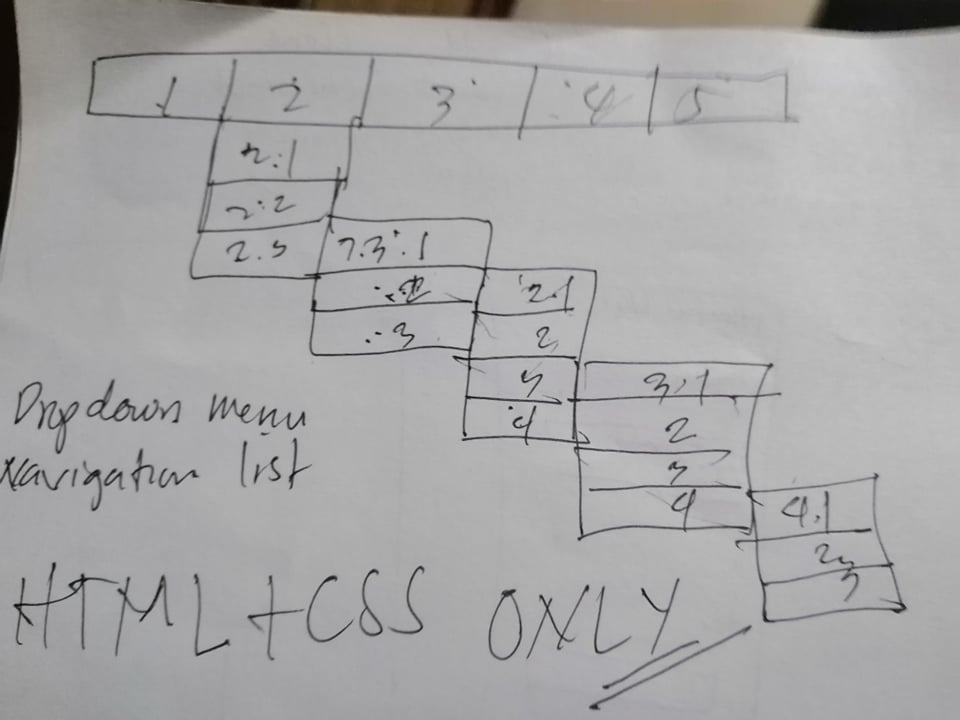 1 2 3 4 5
2.1
2.2
2.3 2.3.1
.2 2.1
.3 2
3 3.1
4 2
3
4 4.1
2
3
Dropdown menu
navigation list
HTML+CSS ONLY